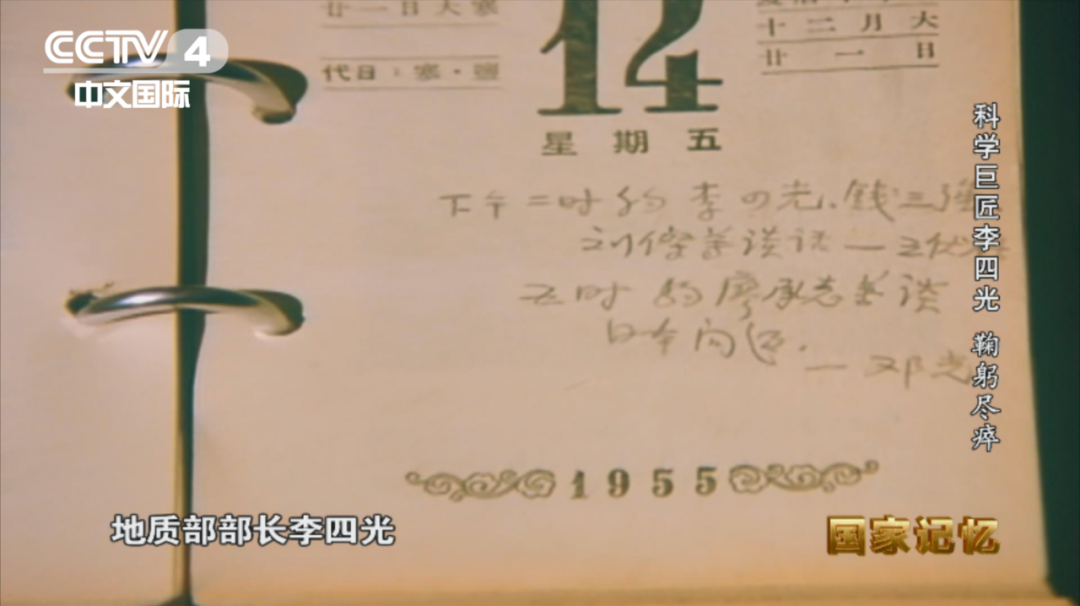 CCTV 4
中文国际
廿一日大寒
代日：寒·
14
十二月大
廿一日
星期五
下午二时约李四光、钱三强
刘傑等谈话一
五时约廖承志等谈
日本问题.
一邓
1955
科学巨匠李四光 鞠躬尽瘁
地质部部长李四光
国家记忆